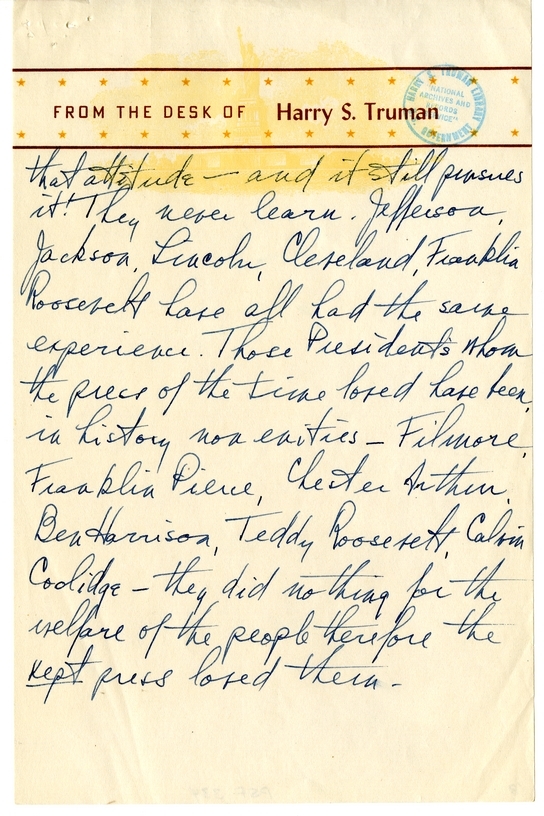 FROM THE DESK OF Harry S. Truman
HARRY S. TRUMAN LIBRARY
"NATIONAL
ARCHIVES AND
RECORDS
SERVICE"
GOVERNMENT
that attitude — and it still pursues
it! They never learn. Jefferson,
Jackson, Lincoln, Cleveland, Franklin
Roosevelt have all had the same
experience. Those Presidents whom
the press of the time loved have been,
in history non enities — Filmore,
Franklin Pierce, Chester Arthur,
Ben Harrison, Teddy Roosevelt, Calvin
Coolidge — they did nothing for the
welfare of the people therefore the
kept press loved them.